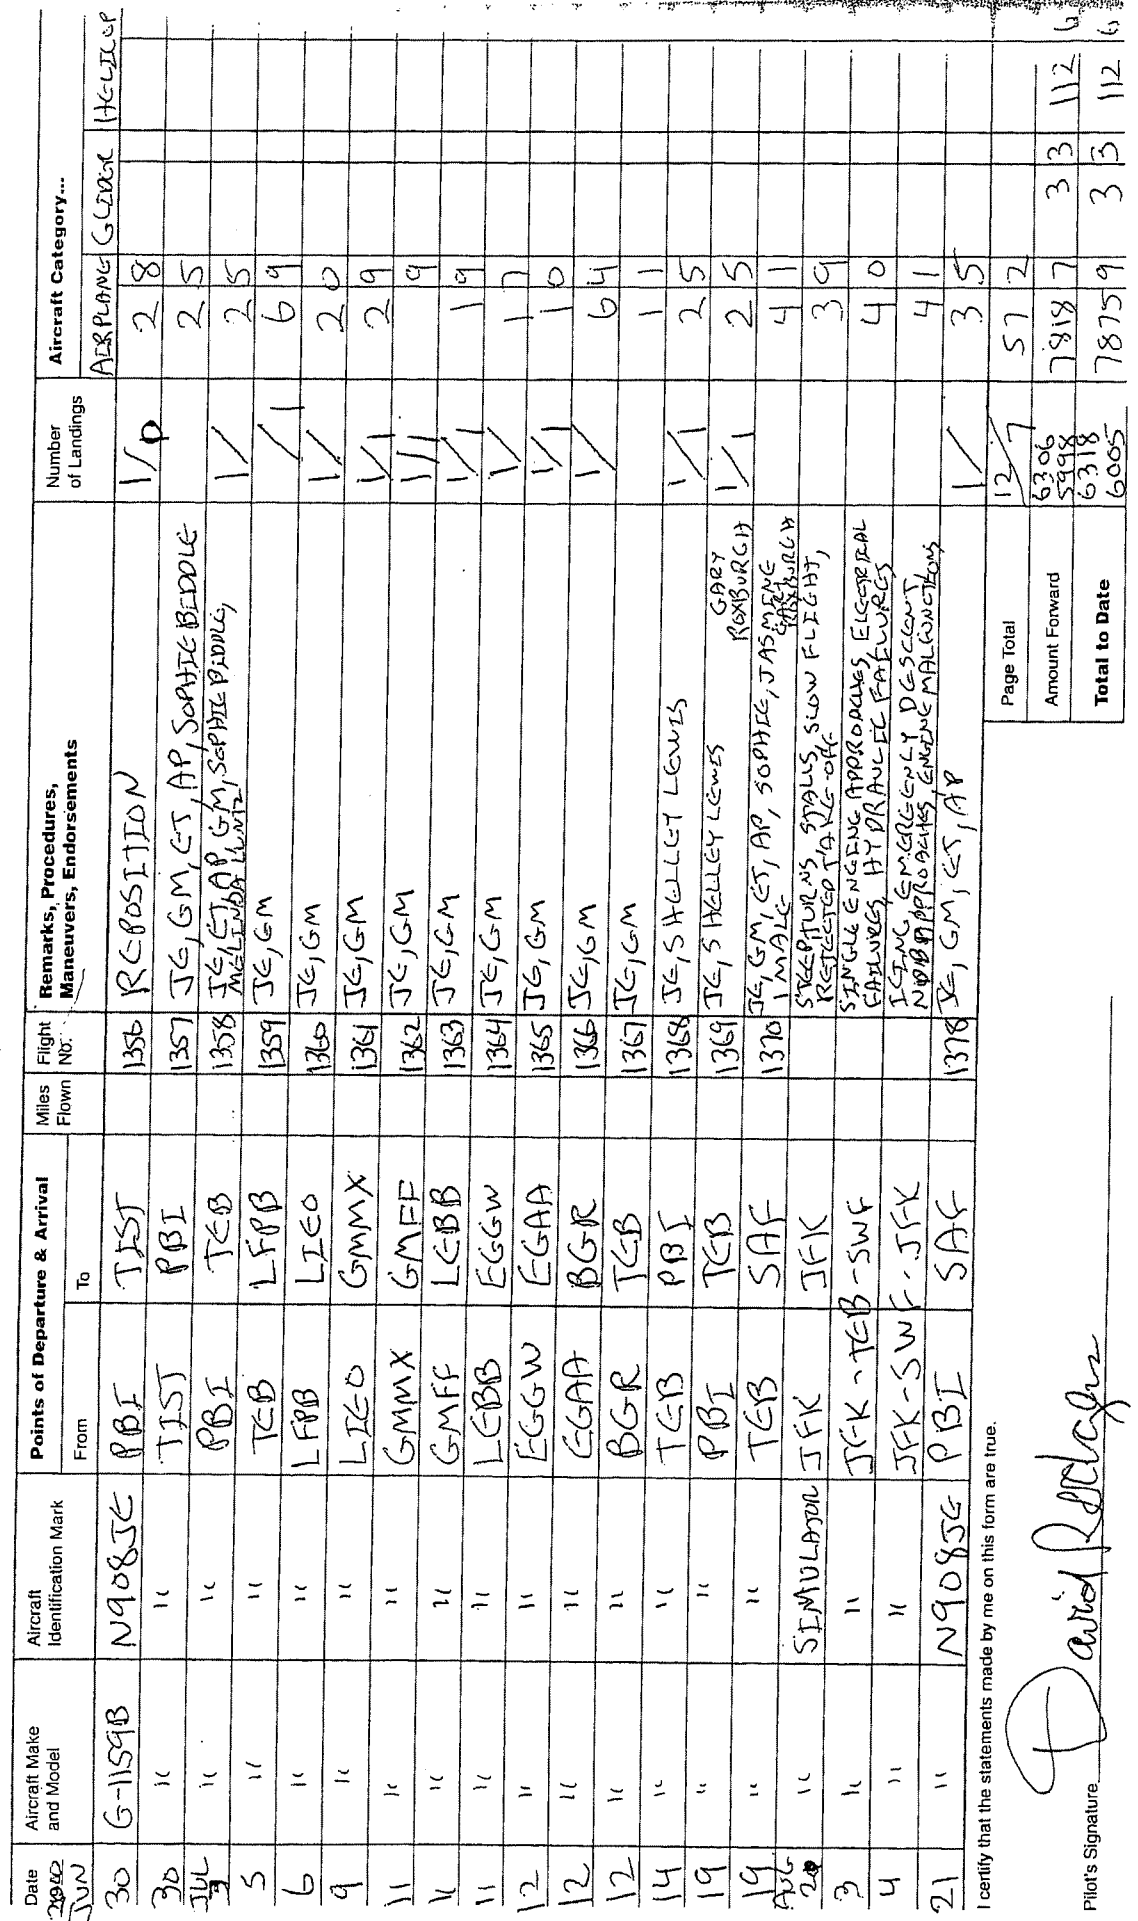 Date
2002
JUN
Aircraft Make and Model
Aircraft Identification Mark
Points of Departure & Arrival
From
To
Miles Flown
Flight No.
Remarks, Procedures, Maneuvers, Endorsements
Number of Landings
Aircraft Category...
AIRPLANE GLIDER HELICOP
30 G-1159B N908JE PBI TIST 1356 REPOSITION 1/0 2 8
30 " " TIST PBI 1357 JE, GM, ET, AP, SOPHIE BIDDLE 2 5
JUL 3 " " PBI TEB 1358 JE, ET, AP, GM, SOPHIE BIDDLE, MELINDA LUNTZ 1/ 2 5
5 " " TEB LFPB 1359 JE, GM /1 6 9
6 " " LFPB LIEO 1360 JE, GM 1/ 2 0
9 " " LIEO GMMX 1361 JE, GM 1/1 2 9
11 " " GMMX GMFF 1362 JE, GM 1/1 9
11 " " GMFF LEBB 1363 JE, GM 1/1 1 9
11 " " LEBB EGGW 1364 JE, GM 1/ 1 7
12 " " EGGW EGAA 1365 JE, GM 1/1 1 0
12 " " EGAA BGR 1366 JE, GM 1/ 6 4
12 " " BGR TEB 1367 JE, GM 1 1
14 " " TEB PBI 1368 JE, SHELLEY LEWIS 1/1 2 5
19 " " PBI TEB 1369 JE, SHELLEY LEWIS GARY ROXBURGH 1/1 2 5
19 " " TEB SAF 1370 JE, GM, ET, AP, SOPHIE, JASMINE 1 MALE GARY ROXBURGH 4 1
AUG 20 " SIMULATOR JFK JFK STEEP TURNS, STALLS, SLOW FLIGHT, REJECTED TAKE-OFF 3 9
3 " " JFK-TEB-SWF SINGLE ENGINE APPROACHES, ELECTRICAL FAILURES, HYDRAULIC FAILURES 4 0
4 " " JFK-SWF-JFK ICING, EMERGENCY DESCENT NDB APPROACHES, ENGINE MALFUNCTIONS 4 1
21 " N908JE PBI SAF 1378 JE, GM, ET, AP 1/ 3 5
I certify that the statements made by me on this form are true.
Page Total 12/7 57 2
Amount Forward 6306 5998 7818 7 3 3 112 6
Total to Date 6318 6005 7875 9 3 3 112 6
Pilot's Signature David Rodgers